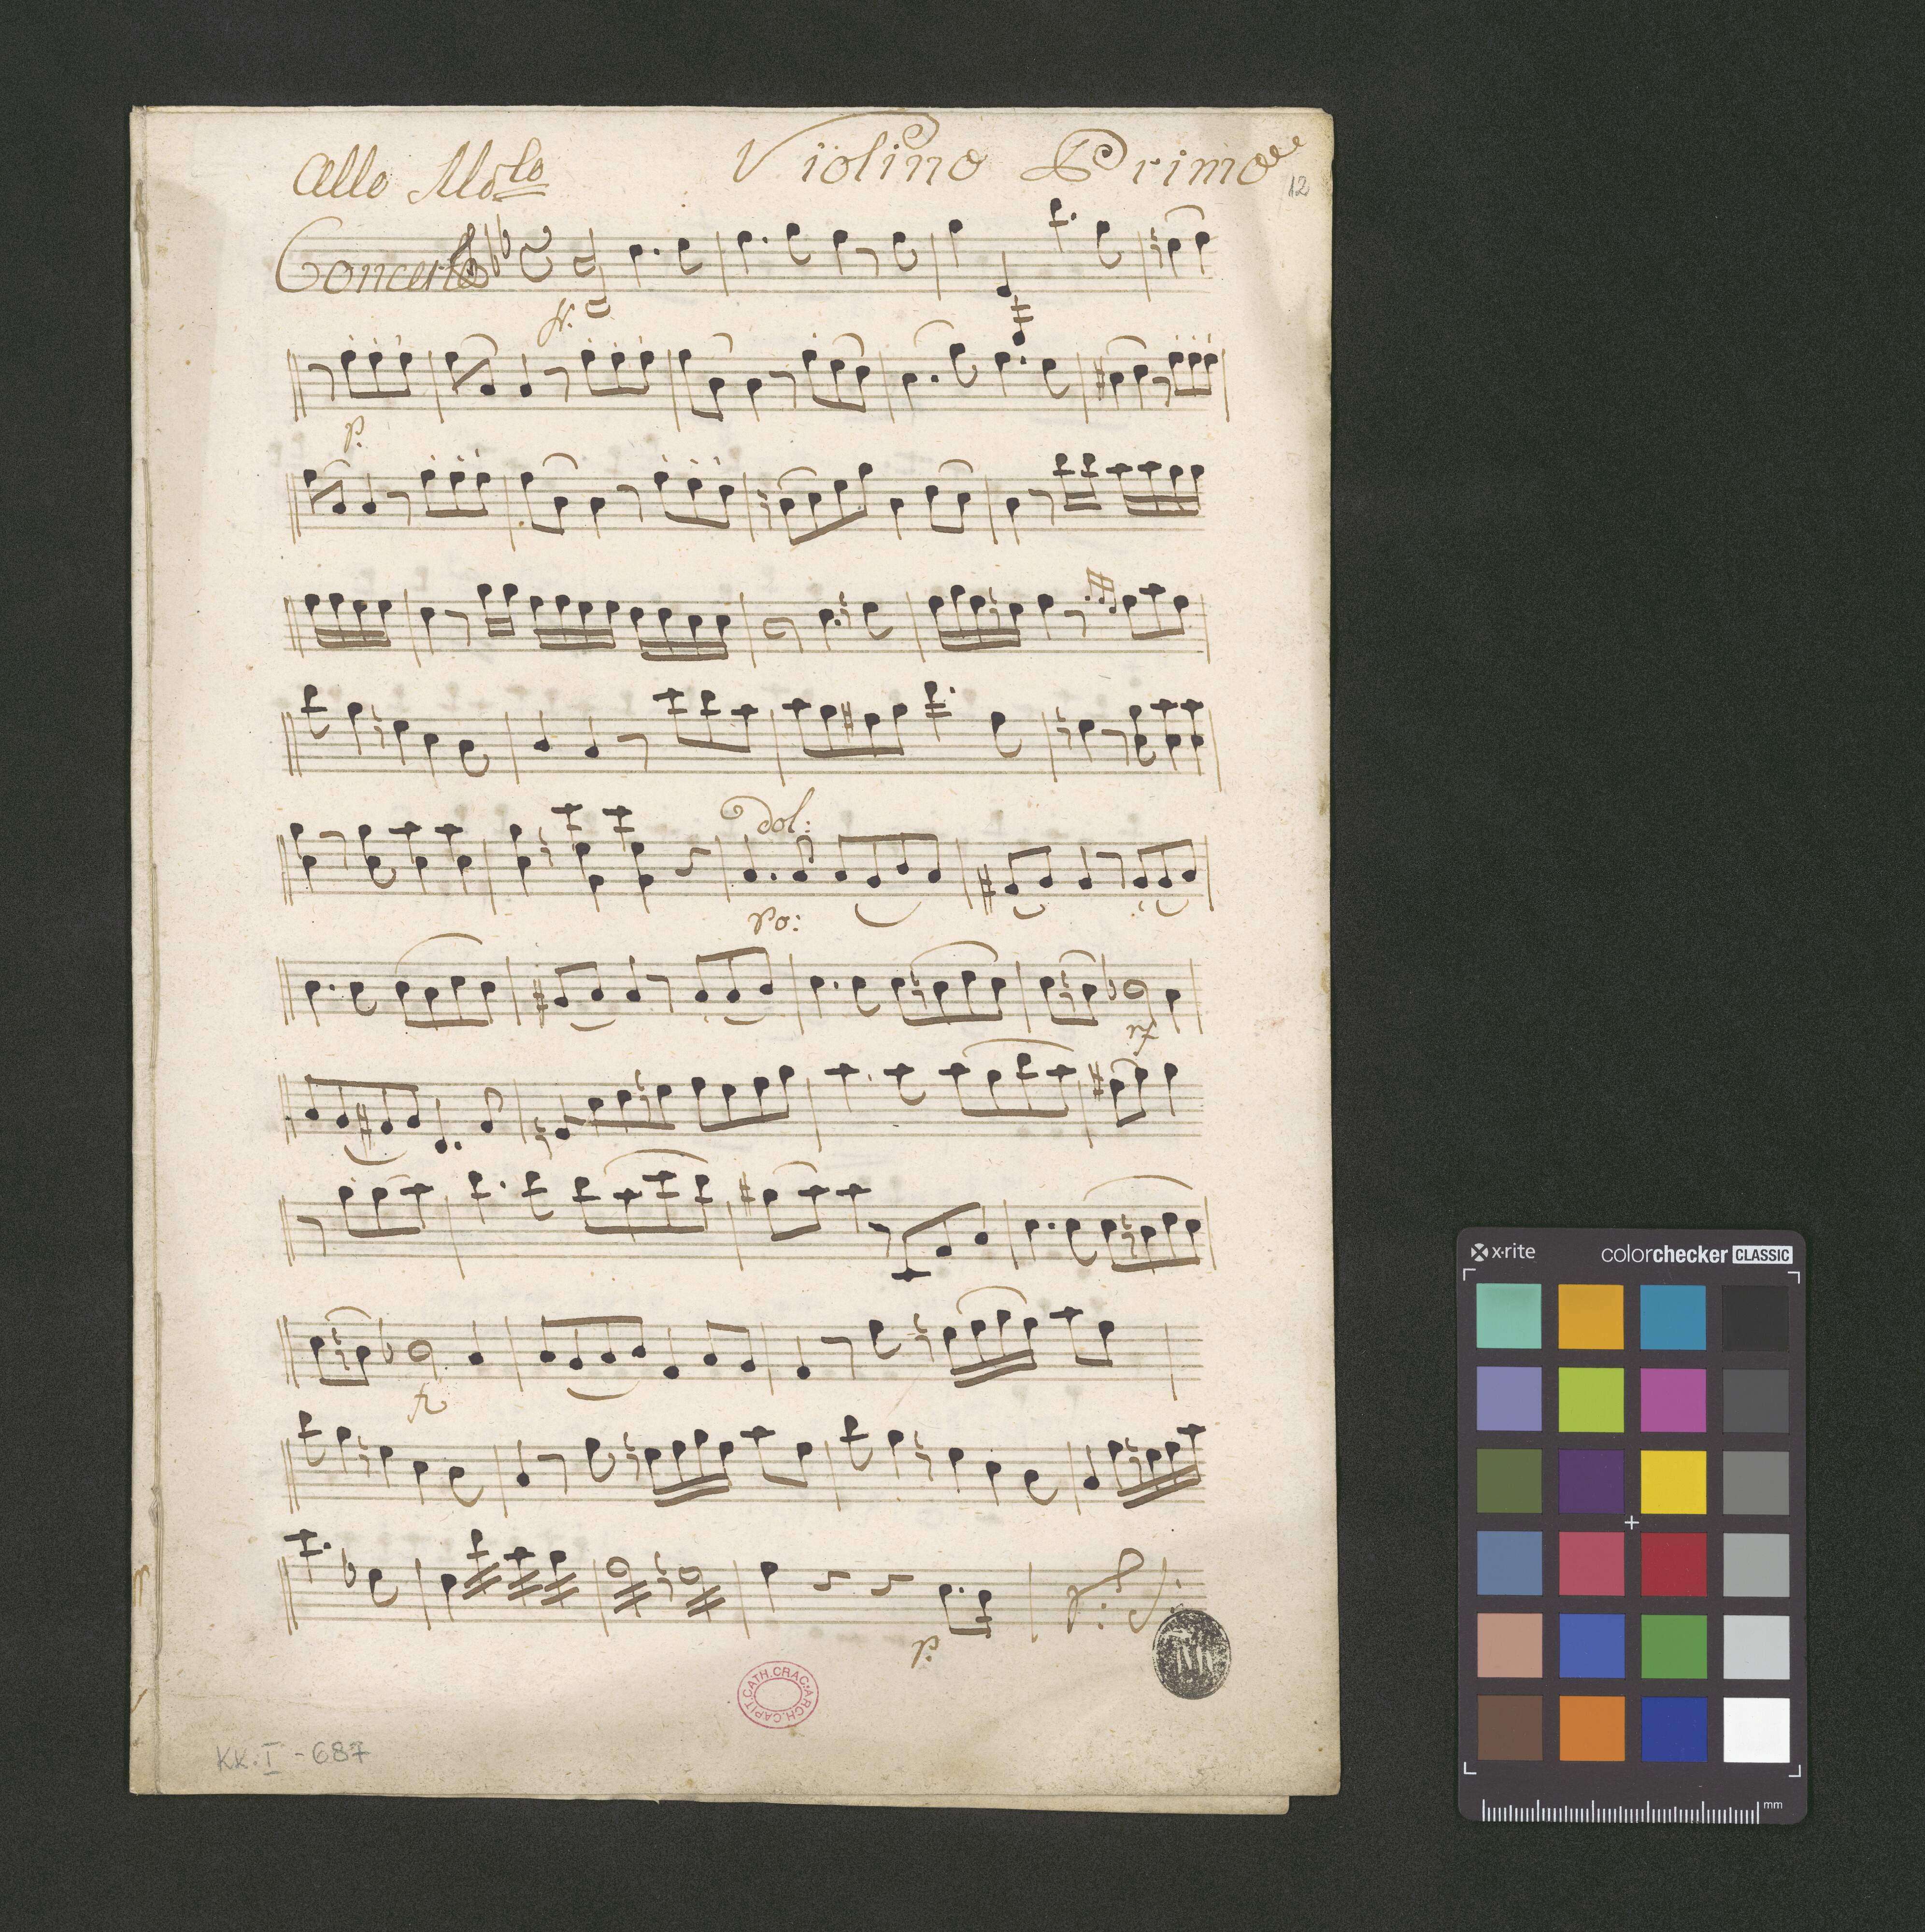 Allo Molo
Violino Primo
12
Concerto
f.
p.
dol:
po:
rf
fr
p.
ARCH. CAPIT. CATH. CRAC.
KK. I - 687
x·rite
colorchecker CLASSIC
mm